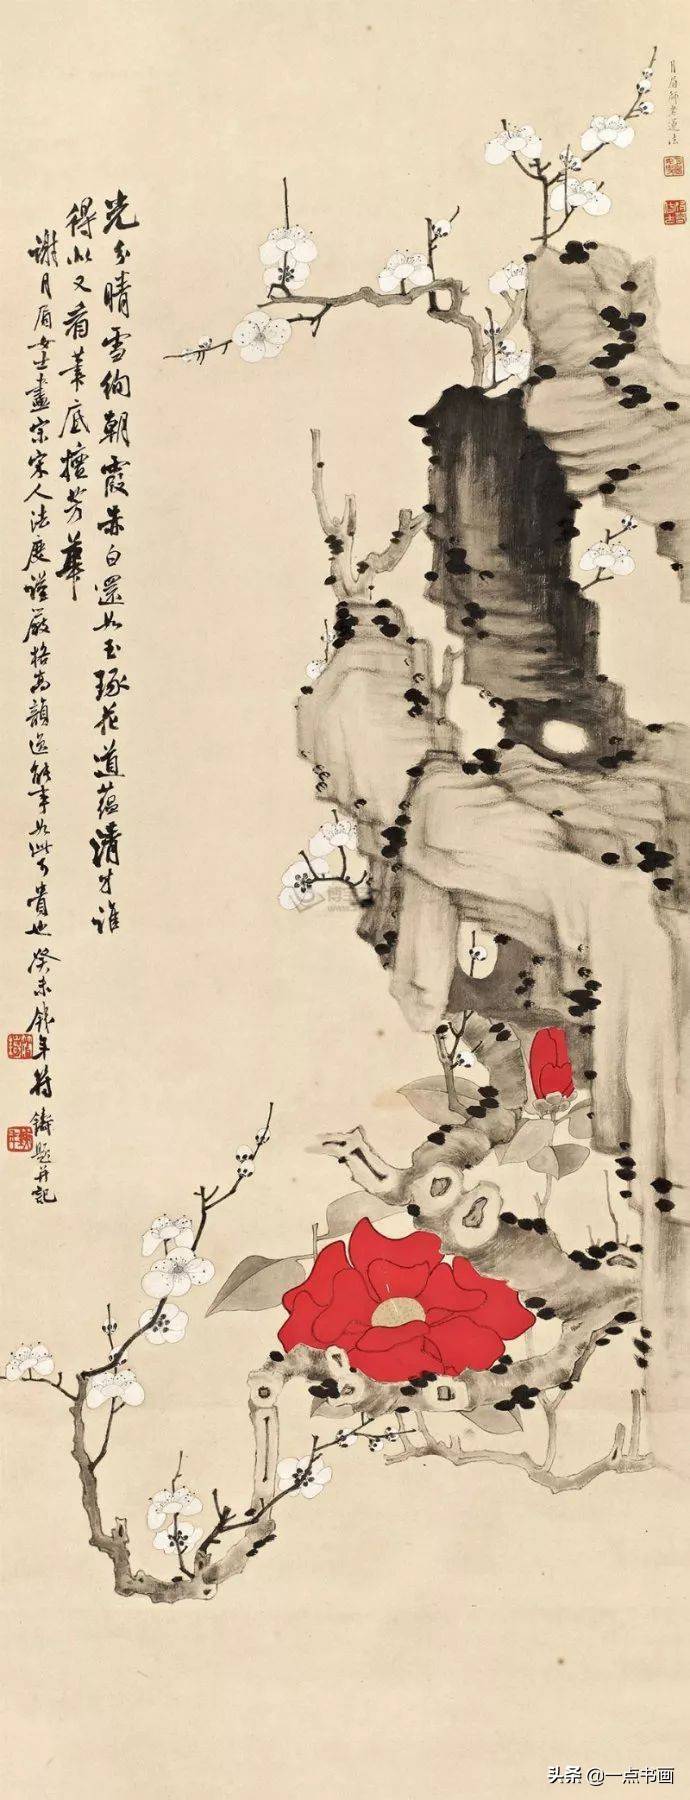 月眉師老蓮法
光分晴雪絢朝霞赤白還如玉琢花道蘊清才誰
得似又看筆底擅芳華
謝月眉女士畫宗宋人法度謹嚴格高韻逸能事如此可貴也癸未殘年符鑄題并記
头条 @一点书画